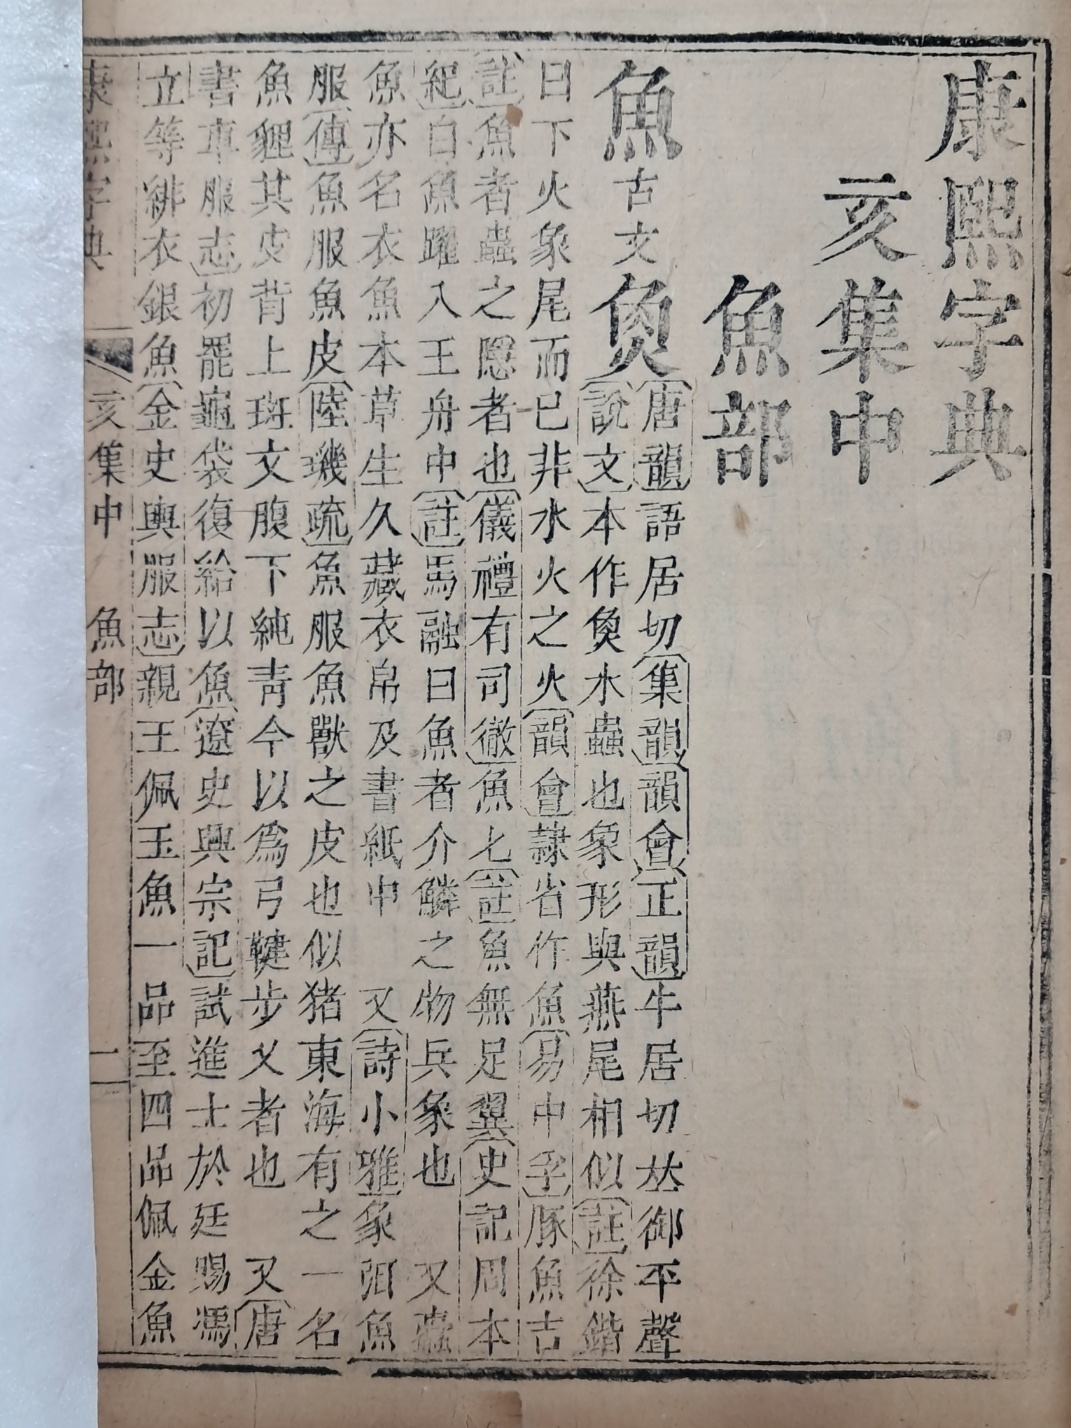 康熙字典
亥集中
魚部
魚古文
唐韻語居切集韻韻會正韻牛居切𠀤御平聲
說文本作水蟲也象形與燕尾相似註徐鍇
曰下火象尾而已非水火之火韻會隷省作魚易中孚豚魚古
註魚者蟲之隱者也儀禮有司徹魚七註魚無足翼史記周本
紀白魚躍入王舟中註馬融曰魚者介鱗之物兵象也 又蠹
魚亦名衣魚本草生久藏衣帛及書紙中 又詩小雅象弭魚
服傳魚服魚皮陸璣疏魚服魚獸之皮也似猪東海有之一名
魚貍其皮背上斑文腹下純靑今以爲弓鞬步叉者也 又唐
書車服志初罷龜袋復給以魚遼史興宗記試進士於廷賜馮
立等緋衣銀魚金史輿服志親王佩玉魚一品至四品佩金魚
康熙字典 亥集中 魚部 二